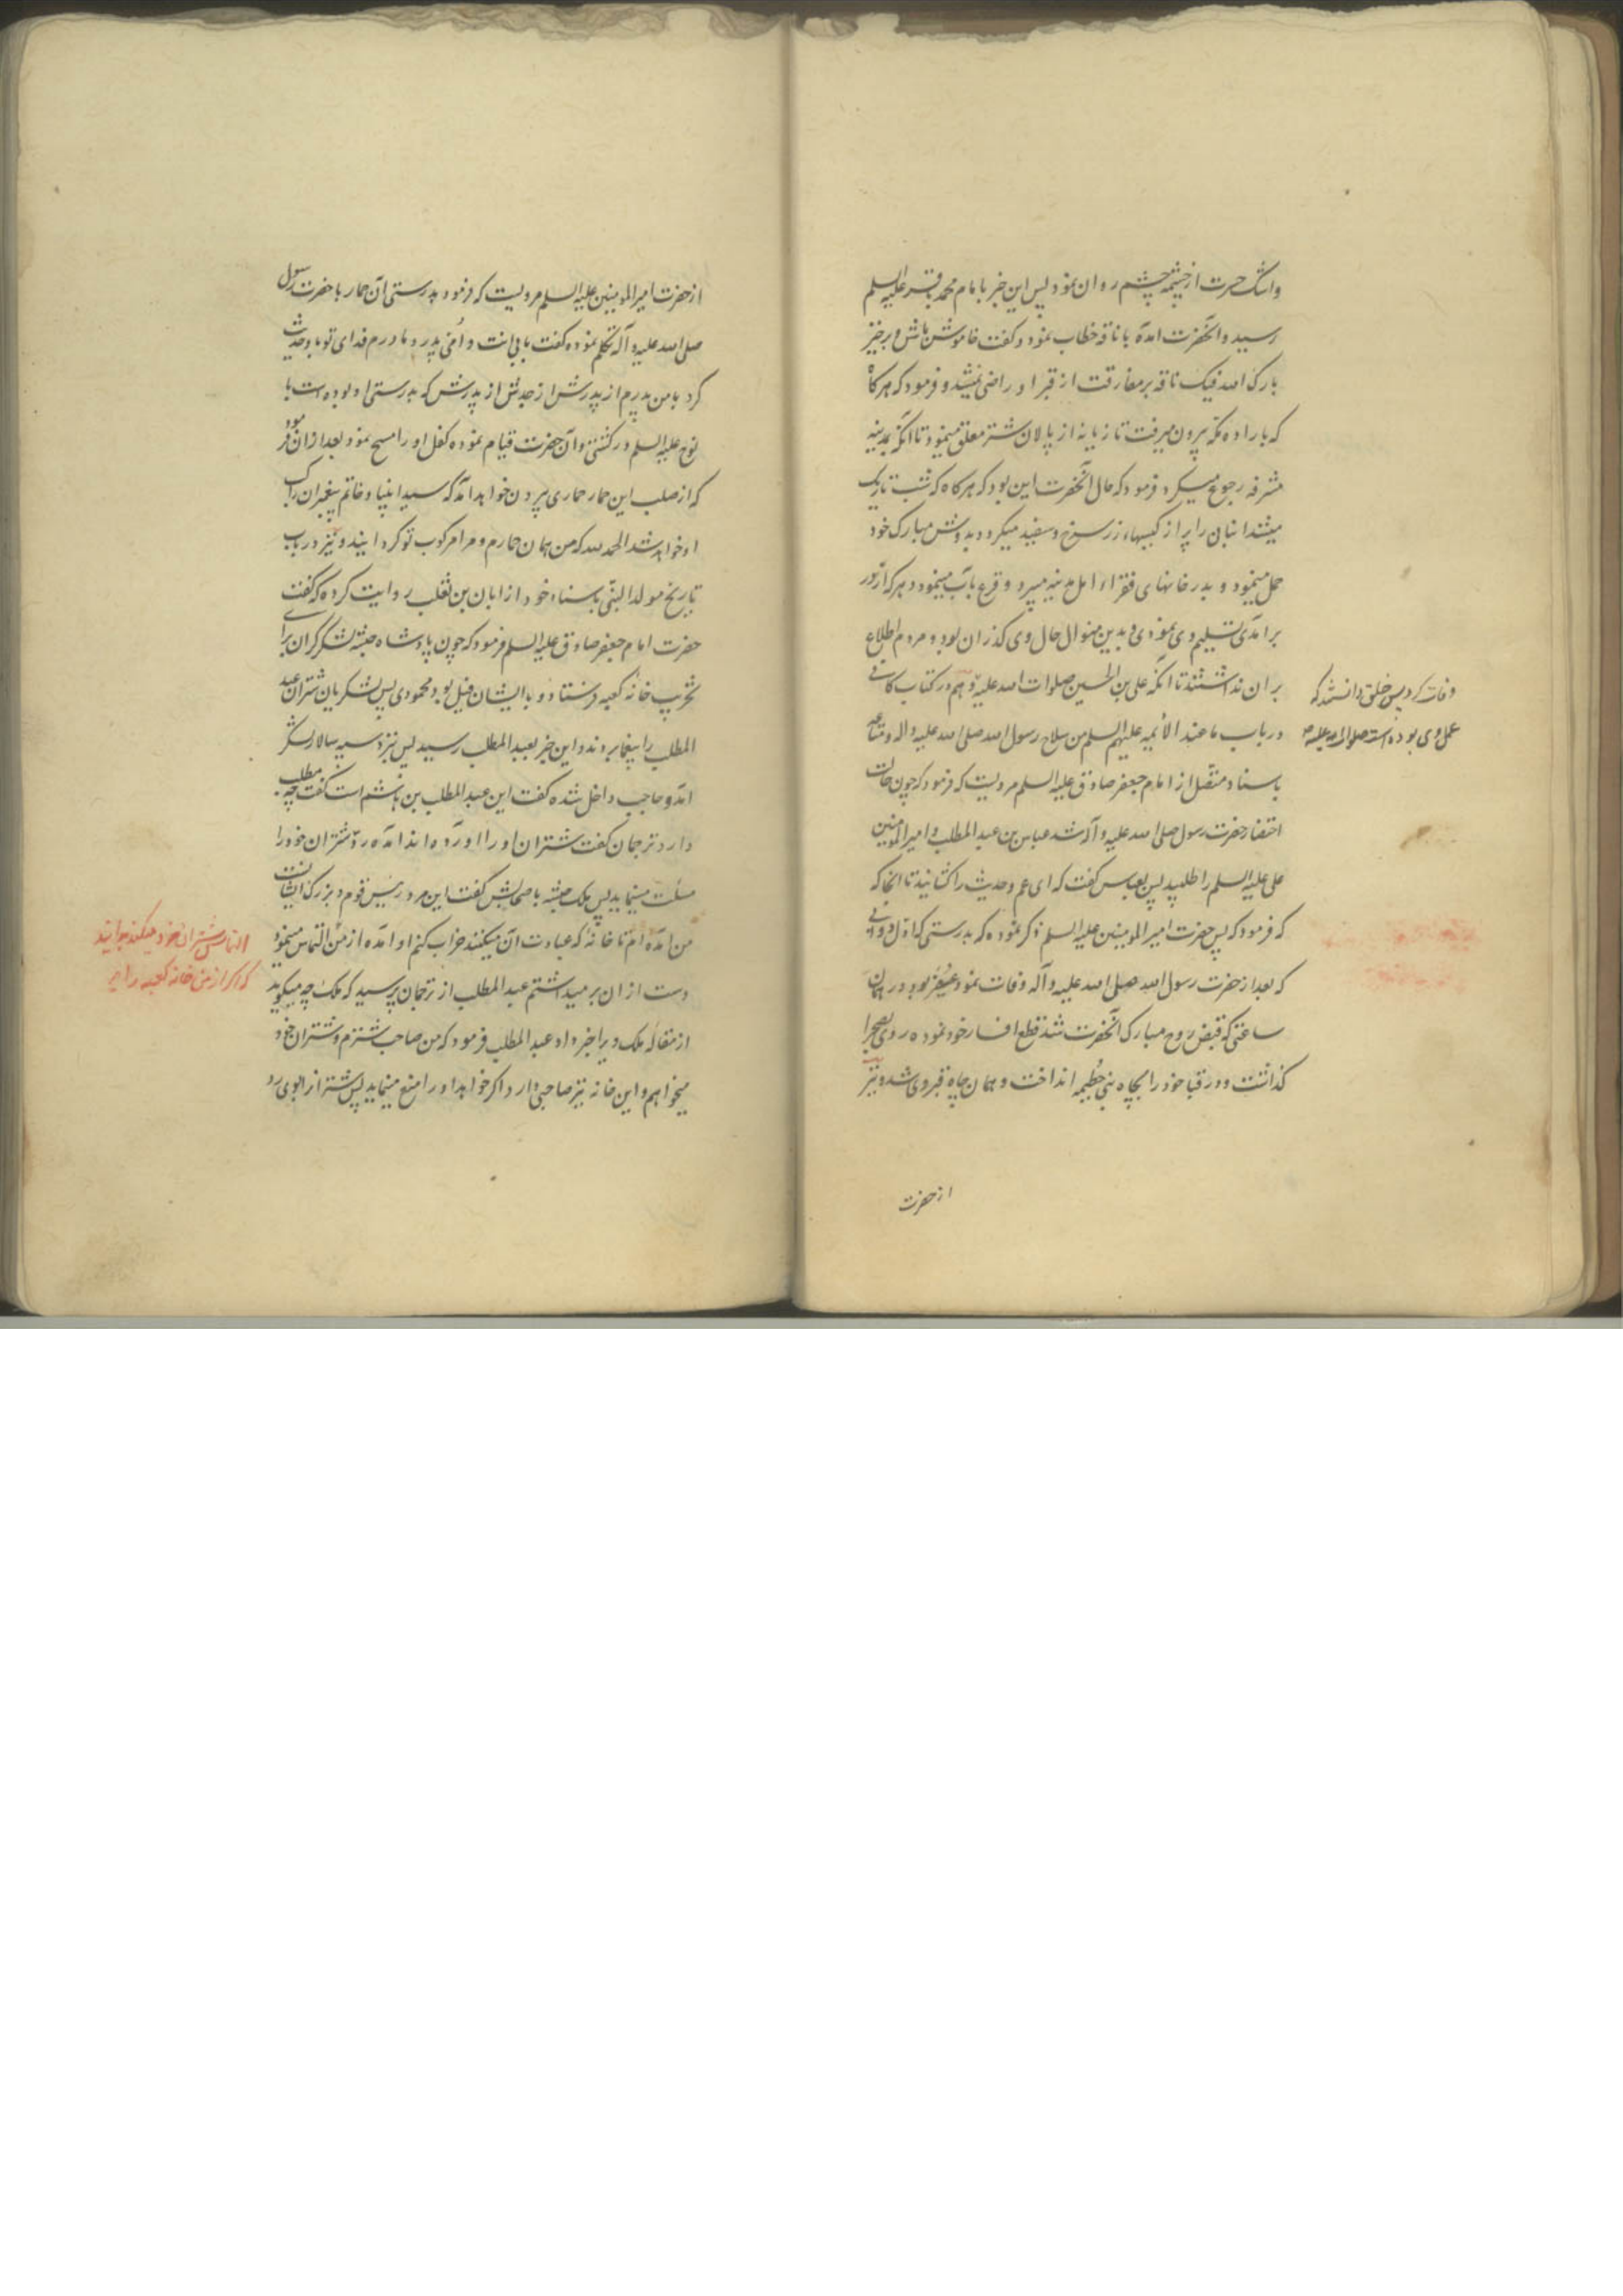 واشک حسرت از چشمه چشم روان نمود پس این خبر بامام محمد باقر علیه السلم
رسید و آنحضرت آمده با ناقه خطاب نمود و گفت خاموش باش و برخیز
بارک الله فیک ناقه بر مفارقت از قبر او راضی نمیشد و فرمود که هر کاه
که باراده مکه بیرون میرفت تازیانه از پالان شتر معلق مینمود تا آنکه بمدینه
مشرفه رجوع میکرد و فرمود که حال آنحضرت این بود که هر کاه که شب تاریک
میشد انبان را پر از کیسهاء زر سرخ و سفید میکرد و بدوش مبارک خود
حمل مینمود و بدر خانهای فقراء اهل مدینه میبرد و قرع باب مینمود و هر که از در
برآمدی تسلیم وی نمودی و بدین منوال حال وی گذران بود و مردم اطلاع
بر آن نداشتند تا آنکه علی بن الحسین صلوات الله علیه و هم در کتاب کافی
وفات کرد پس خلق دانستند که
عمل وی بوده است صلوات الله علیه
در باب ما عند الائمه علیهم السلم من سلاح رسول الله صلی الله علیه واله و متاعه
باسناد متصل از امام جعفر صادق علیه السلم مرویست که فرمود که چون حالت
احتضار حضرت رسول صلی الله علیه وآله شد عباس بن عبد المطلب و امیر المومنین
علی علیه السلم را طلبید پس بعباس گفت که ای عم وحدیث را کشانید تا آنجا که
که فرمود که پس حضرت امیر المومنین علیه السلم ذکر نموده که بدرستی که اول دوابی
که بعد از حضرت رسول الله صلی الله علیه وآله وفات نمود عفیر بود در همان
ساعتی که قبض روح مبارک آنحضرت شد قطع افسار خود نموده روی بصحرا
گذاشت و در قبا خود را بچاه بنی حُطیمه انداخت و همان چاه قبر وی شد و نیز
از حضرت
از حضرت امیر المومنین علیه السلم مرویست که فرمود بدرستی آن حمار با حضرت رسول
صلی الله علیه وآله تکلم نموده گفت بابی انت و اُمّی پدر و مادرم فدای تو باد وحدیث
کرد با من پدرم از پدرش از جدش از پدرش که بدرستی او بوده است با
نوح علیه السلم در کشتی و آن حضرت قیام نموده کفل او را مسح نمود بعد از آن فرمود
که از صلب این حمار حماری بیرون خواهد آمد که سید انبیا و خاتم پیغبران راکب
او خواهد شد الحمد لله که من همان حمارم و مرا مرکوب تو گردانیند و نیز در باب
تاریخ مولد النبی باسناد خود از ابان بن تغلب روایت کرده که گفت
حضرت امام جعفر صادق علیه السلم فرمود که چون پادشاه حبشه لشکر گران برای
تخریب خانه کعبه فرستاد و با ایشان فیل بود محمودی پس لشکریان شتران عبد
المطلب را بیغما بردند و این خبر بعبد المطلب رسید پس نزد سپه سالار لشکر
آمد و حاجب داخل شده گفت این عبد المطلب بن هاشم است گفت چه مطلب
دارد ترجمان گفت شتران او را آورده اند آمده رد شتران خود را
مسئلت مینماید پس ملک حبشه باصحابش گفت این مرد رئیس قوم و بزرگ ایشانست
من آمده ام تا خانهٔ که عبادت آن میکنند خراب کنم او آمده از من التماس مینمود
التماس شتران خود میکند بخدایند
که اگر از من خانه کعبه را
دست از آن بر میداشتم عبد المطلب از ترجمان پرسید که ملک چه میگوید
از مقاله ملک ویرا خبر داد عبد المطلب فرمود که من صاحب شترم و شتران خود
میخواهم و این خانه نیز صاحبی دارد اگر خواهد او را منع مینماید پس شتر از ابوی رد